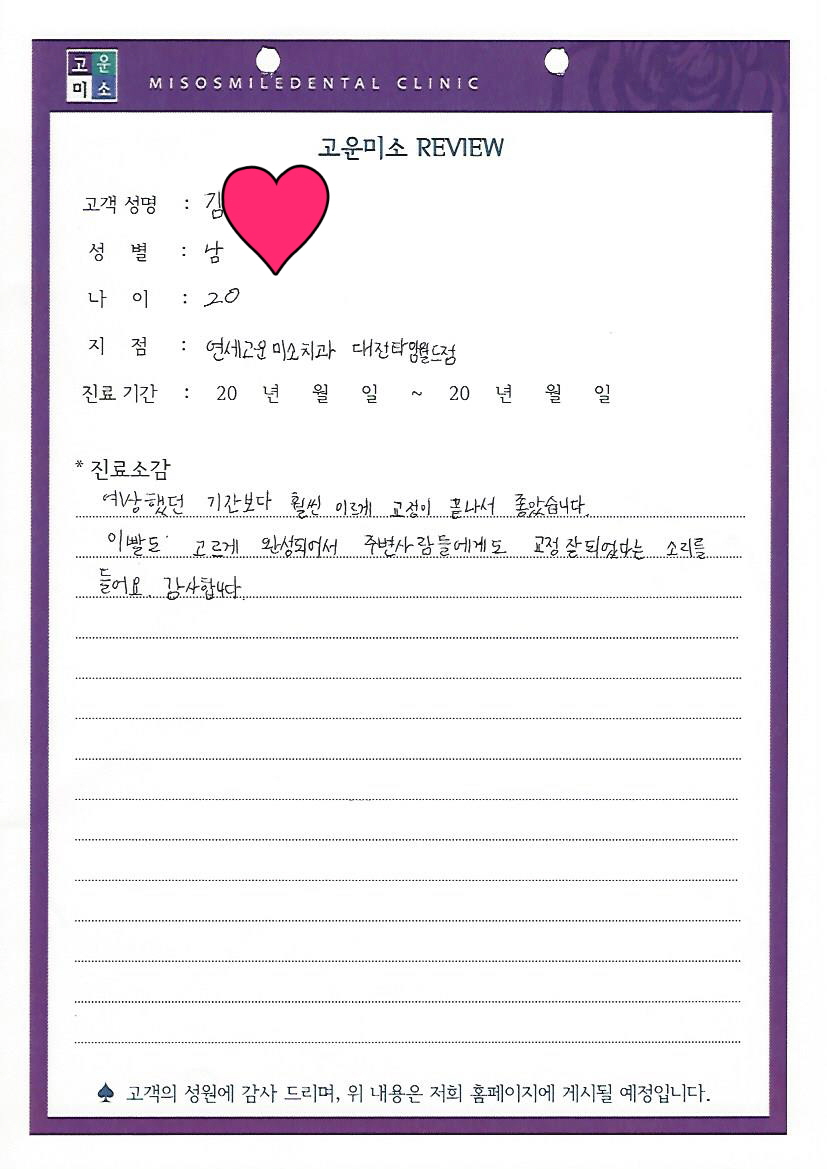 고운
미소
MISOSMILEDENTAL CLINIC
고운미소 REVIEW
고객 성명 : 김
성 별 : 남
나 이 : 20
지 점 : 연세고운미소치과 대전타임월드점
진료 기간 : 20 년 월 일 ~ 20 년 월 일
* 진료소감
예상했던 기간보다 훨씬 이르게 교정이 끝나서 좋았습니다.
이빨도 고르게 완성되어서 주변사람들에게도 교정 잘되었다는 소리를
들어요. 감사합니다.
♠ 고객의 성원에 감사 드리며, 위 내용은 저희 홈페이지에 게시될 예정입니다.